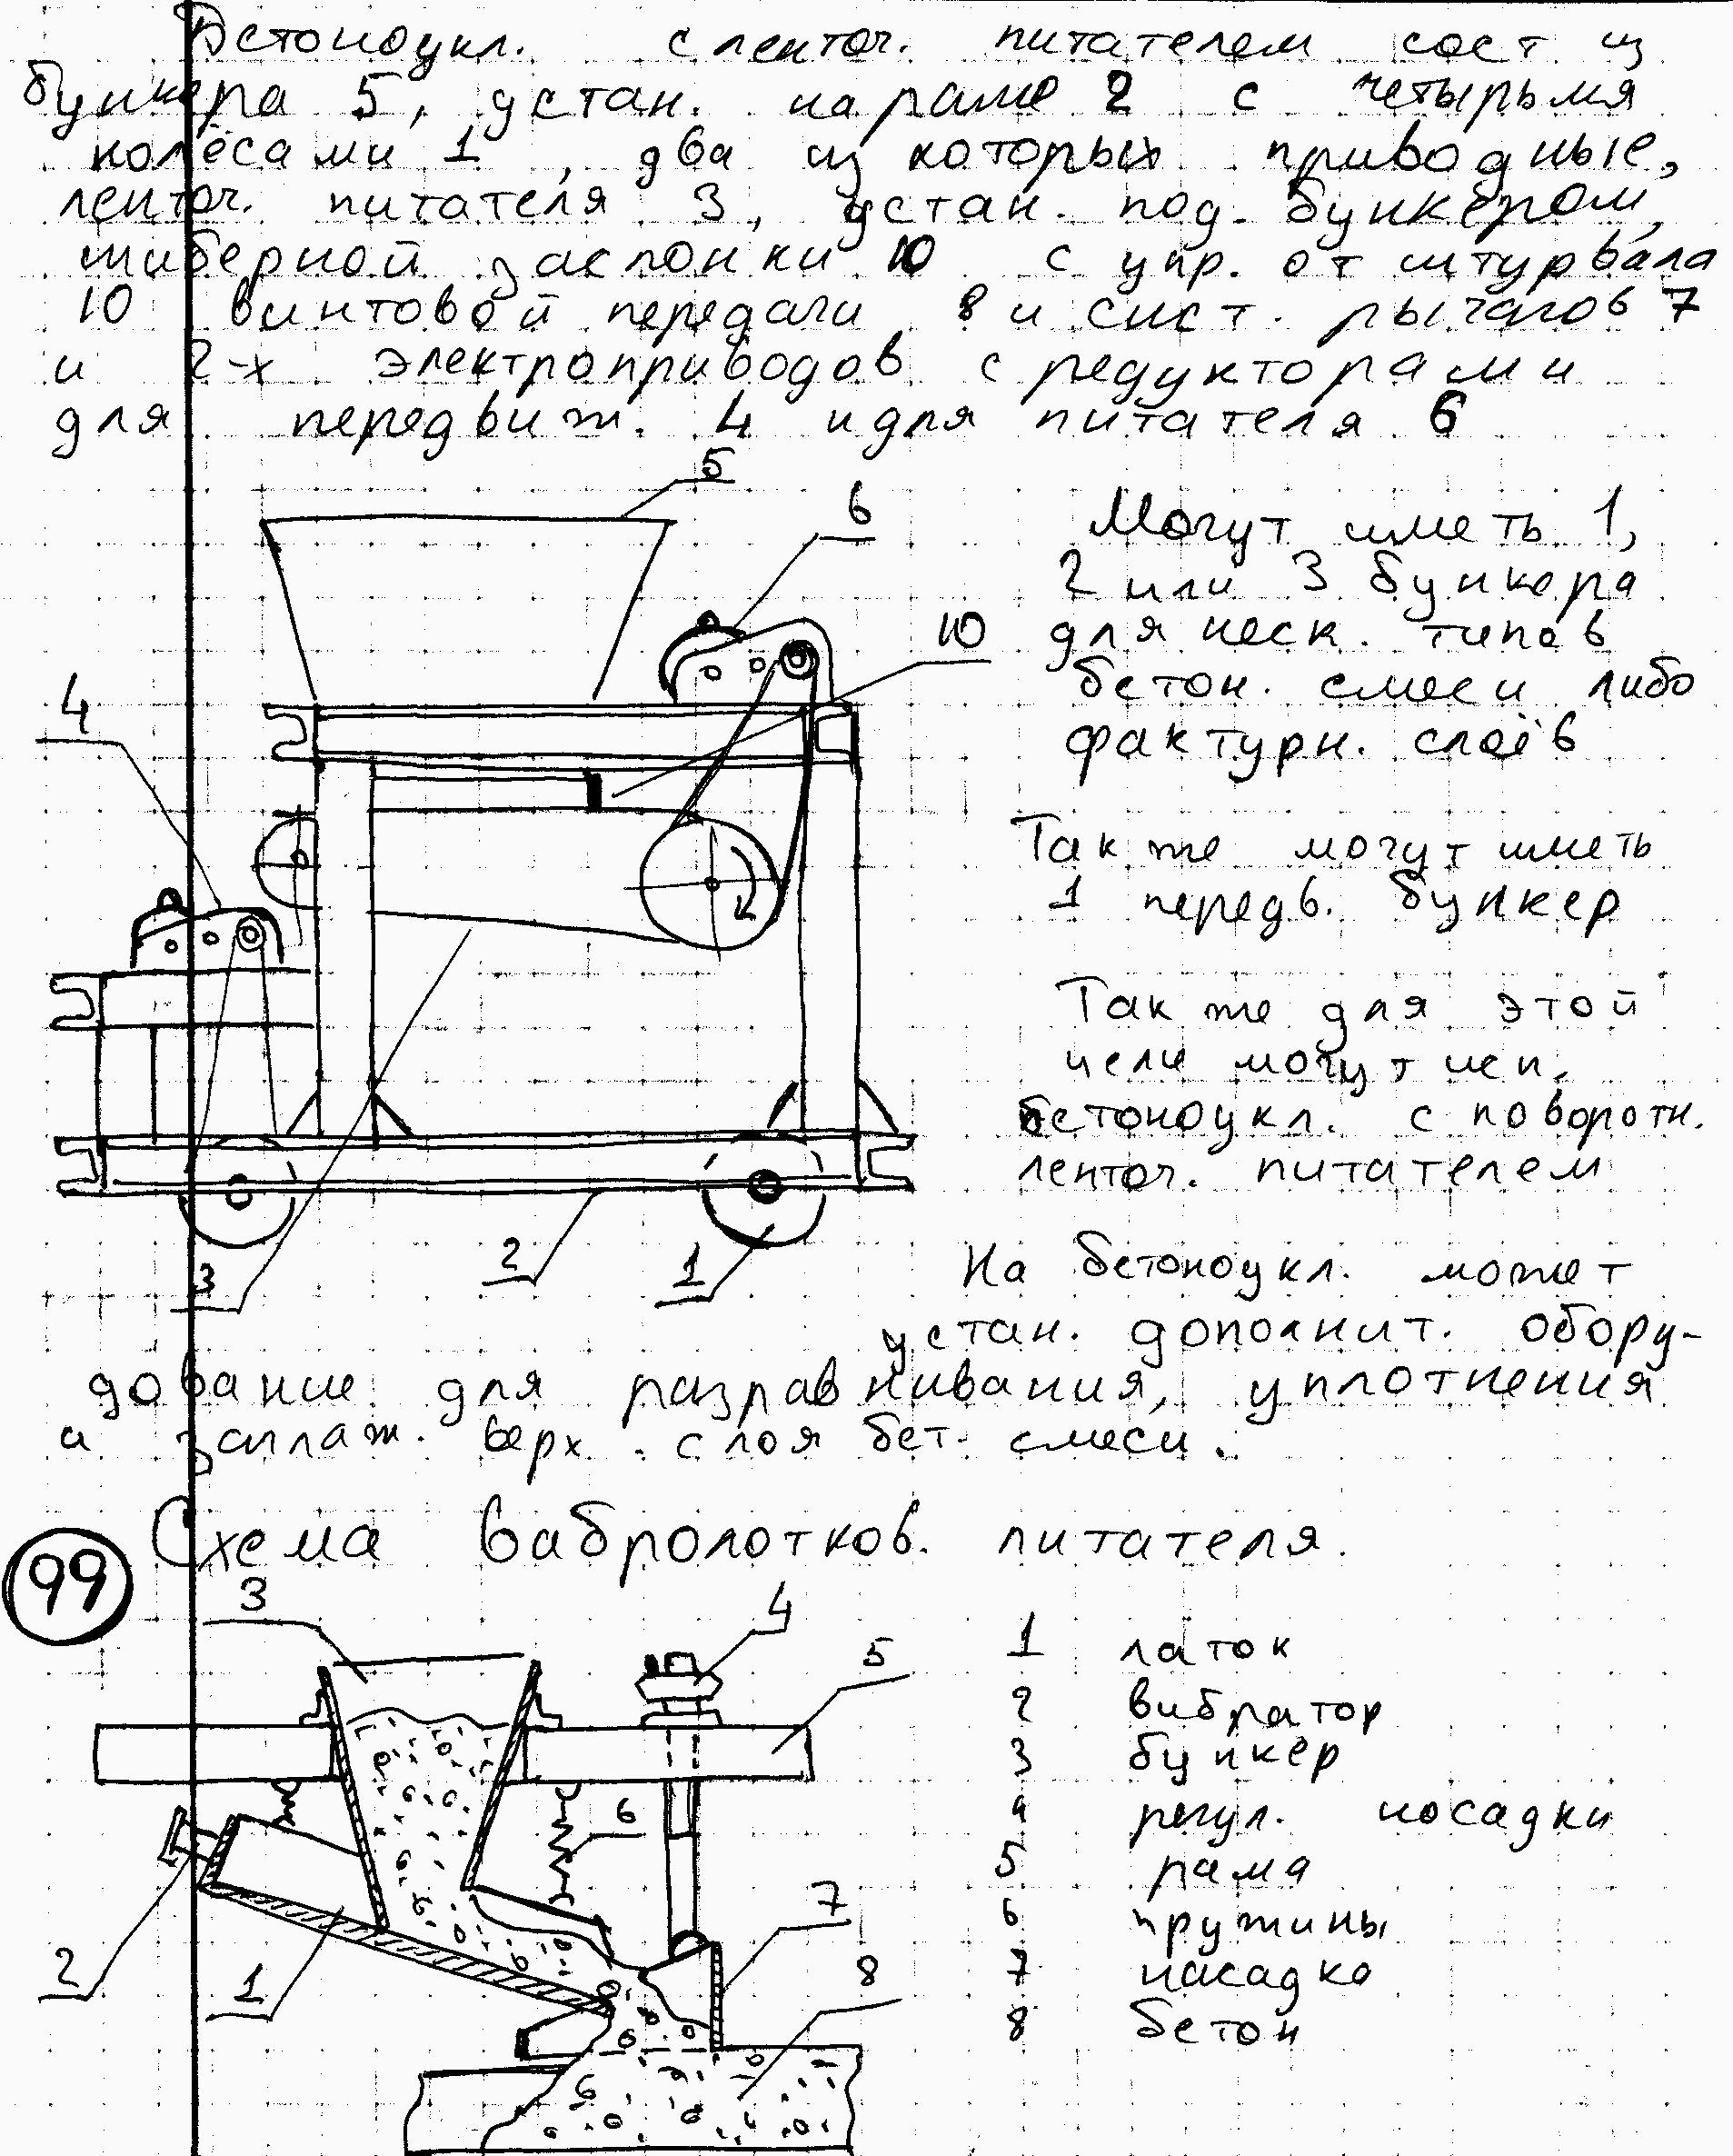 Бетоноукл. с ленточ. питателем сост из
бункера 5, устан. на раме 2 с четырьмя
колёсами 1, два из которых приводные,
ленточ. питателя 3, устан. под. бункером,
шиберной заслонки 10 с упр. от штурвала
10 винтовой передачи 8 и сист. рычагов 7
и 2-х электроприводов с редукторами
для передвиж. 4 и для питателя 6
5
6
10
4
3
2
1
Могут иметь 1,
2 или 3 бункера
для неск. типов
бетон. смеси либо
фактурн. слоёв
Так же могут иметь
1 передв. бункер
Так же для этой
цели могут исп.
бетоноукл. с поворотн.
ленточ. питателем
На бетоноукл. может
устан. дополнит. обору-
дование для разравнивания, уплотнения
и заглаж. верх. слоя бет. смеси.
99
Схема вибролотков. питателя.
3
4
5
6
7
8
2
1
1 латок
2 вибратор
3 бункер
4 регул. носадки
5 рама
6 пружины
7 насадка
8 бетон